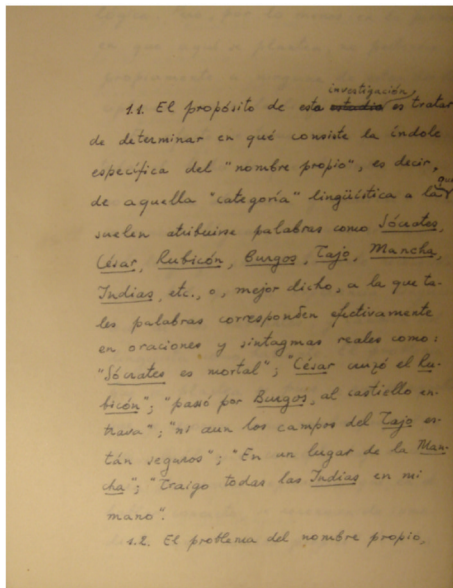 investigación,
1.1. El propósito de esta estudio es tratar
de determinar en qué consiste la índole
específica del "nombre propio", es decir,
de aquella "categoría" lingüística a la que
suelen atribuirse palabras como Sócrates,
César, Rubicón, Burgos, Tajo, Mancha,
Indias, etc., o, mejor dicho, a la que ta-
les palabras corresponden efectivamente
en oraciones y sintagmas reales como:
"Sócrates es mortal"; "César cruzó el Ru-
bicón"; "passó por Burgos, al castiello en-
trava"; "ni aun los campos del Tajo es-
tán seguros"; "En un lugar de la Man-
cha"; "Traigo todas las Indias en mi
mano".
1.2. El problema del nombre propio,